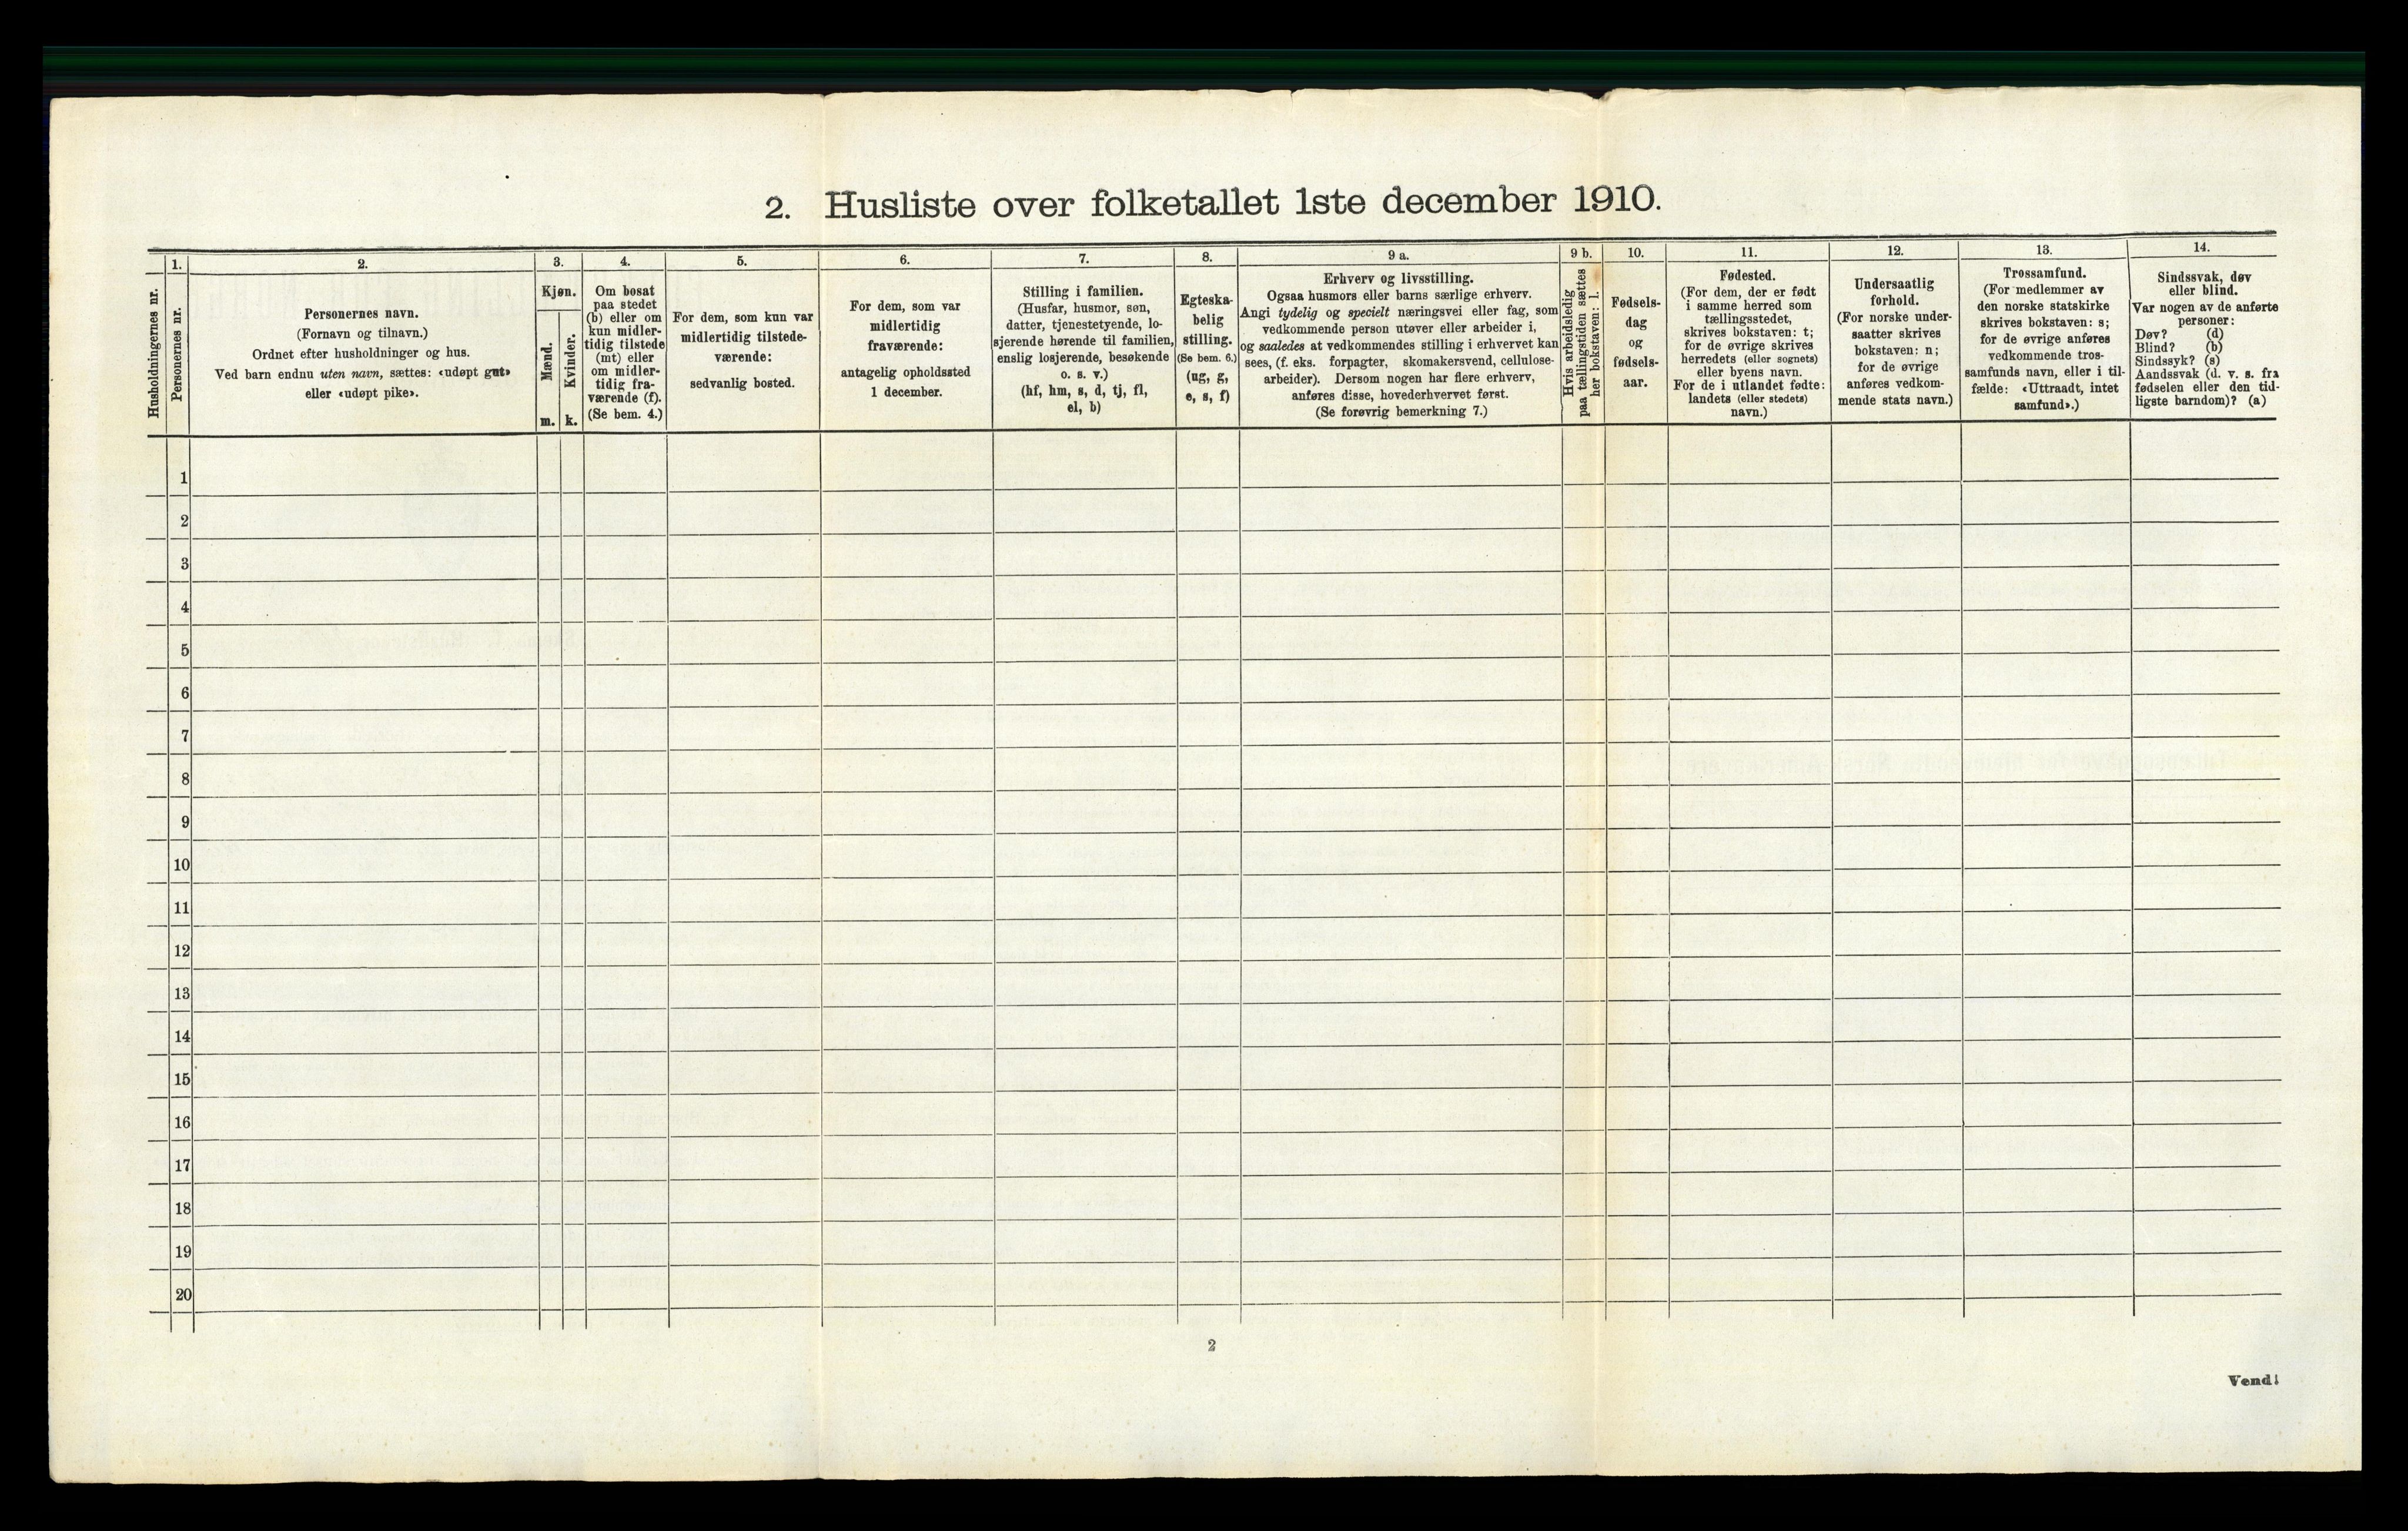 2. Husliste over folketallet 1ste december 1910.
Husholdningernes nr.
1.
Personernes nr.
2.
Personernes navn.
(Fornavn og tilnavn.)
Ordnet efter husholdninger og hus.
Ved barn endnu uten navn, sættes: «udøpt gut»
eller «udøpt pike».
3.
Kjøn.
Mænd.
Kvinder.
m.
k.
4.
Om bosat
paa stedet
(b) eller om
kun midler-
tidig tilstede
(mt) eller
om midler-
tidig fra-
værende (f).
(Se bem. 4.)
5.
For dem, som kun var
midlertidig tilstede-
værende:
sedvanlig bosted.
6.
For dem, som var
midlertidig
fraværende:
antagelig opholdssted
1 december.
7.
Stilling i familien.
(Husfar, husmor, søn,
datter, tjenestetyende, lo-
sjerende hørende til familien,
enslig losjerende, besøkende
o. s. v.)
(hf, hm, s, d, tj, fl,
el, b)
8.
Egteska-
belig
stilling.
(Se bem. 6.)
(ug, g,
e, s, f)
9 a.
Erhverv og livsstilling.
Ogsaa husmors eller barns særlige erhverv.
Angi tydelig og specielt næringsvei eller fag, som
vedkommende person utøver eller arbeider i,
og saaledes at vedkommendes stilling i erhvervet kan
sees, (f. eks. forpagter, skomakersvend, cellulose-
arbeider). Dersom nogen har flere erhverv,
anføres disse, hovederhvervet først.
(Se forøvrig bemerkning 7.)
9 b.
Hvis arbeidsledig
paa tællingstiden sættes
her bokstaven: l.
10.
Fødsels-
dag
og
fødsels-
aar.
11.
Fødested.
(For dem, der er født
i samme herred som
tællingsstedet,
skrives bokstaven: t;
for de øvrige skrives
herredets (eller sognets)
eller byens navn.
For de i utlandet fødte:
landets (eller stedets)
navn.)
12.
Undersaatlig
forhold.
(For norske under-
saatter skrives
bokstaven: n;
for de øvrige
anføres vedkom-
mende stats navn.)
13.
Trossamfund.
(For medlemmer av
den norske statskirke
skrives bokstaven: s;
for de øvrige anføres
vedkommende tros-
samfunds navn, eller i til-
fælde: «Uttraadt, intet
samfund».)
14.
Sindssvak, døv
eller blind.
Var nogen av de anførte
personer:
Døv? (d)
Blind? (b)
Sindssyk? (s)
Aandssvak (d. v. s. fra
fødselen eller den tid-
ligste barndom)? (a)
1
2
3
4
5
6
7
8
9
10
11
12
13
14
15
16
17
18
19
20
2
Vend!